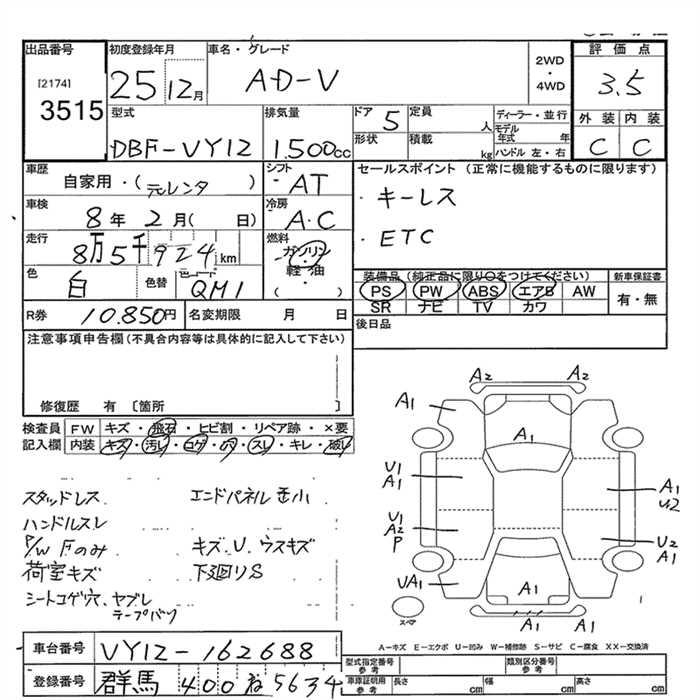 出品番号 初度登録年月 車名・グレード 2WD・4WD 評価点
[2174] 3515 25 12月 AD-V 3.5
型式 排気量 ドア 5 定員 人 ディーラー・並行 外装 内装
DBF-VY12 1.500cc 形状 積載 kg モデル年式 年 ハンドル 左・右 C C
車歴 シフト セールスポイント (正常に機能するものに限ります)
自家用・(元レンタ) AT ・キーレス
車検 冷房
8年 2月( 日) A.C ・ETC
走行 燃料
8万5千924km ガソリン・軽油・( )
色 色替 色コード 装備品 (純正品に限り○をつけてください) 新車保証書
白 QM1 PS PW ABS エアB AW 有・無
SR ナビ TV カワ
R券 10.850円 名変期限 月 日 後日品
注意事項申告欄(不具合内容等は具体的に記入して下さい)
修復歴 有 〔箇所 〕
検査員 FW キズ・飛石・ヒビ割・リペア跡・×要
記入欄 内装 キズ・汚レ・コゲ・穴・スレ・キレ・破レ
スタッドレス エンドパネル歪小
ハンドルスレ
P/W Fのみ キズ.U.ウスキズ
荷室キズ 下廻りS
シートコゲ穴、ヤブレ
テープバリ
A2 A2
A1 A1
U1 A1 A1 U2
U1 A2 P U2 A1
UA1 A1
A1
スペア
A-キズ E-エクボ U-凹み W-補修跡 S-サビ C-腐食 XX-交換済
車台番号 VY12-162688
型式指定番号 参考 類別区分番号 参考
登録番号 群馬 400 ね 5634
車庫証明用 参考 長さ cm 幅 cm 高さ cm